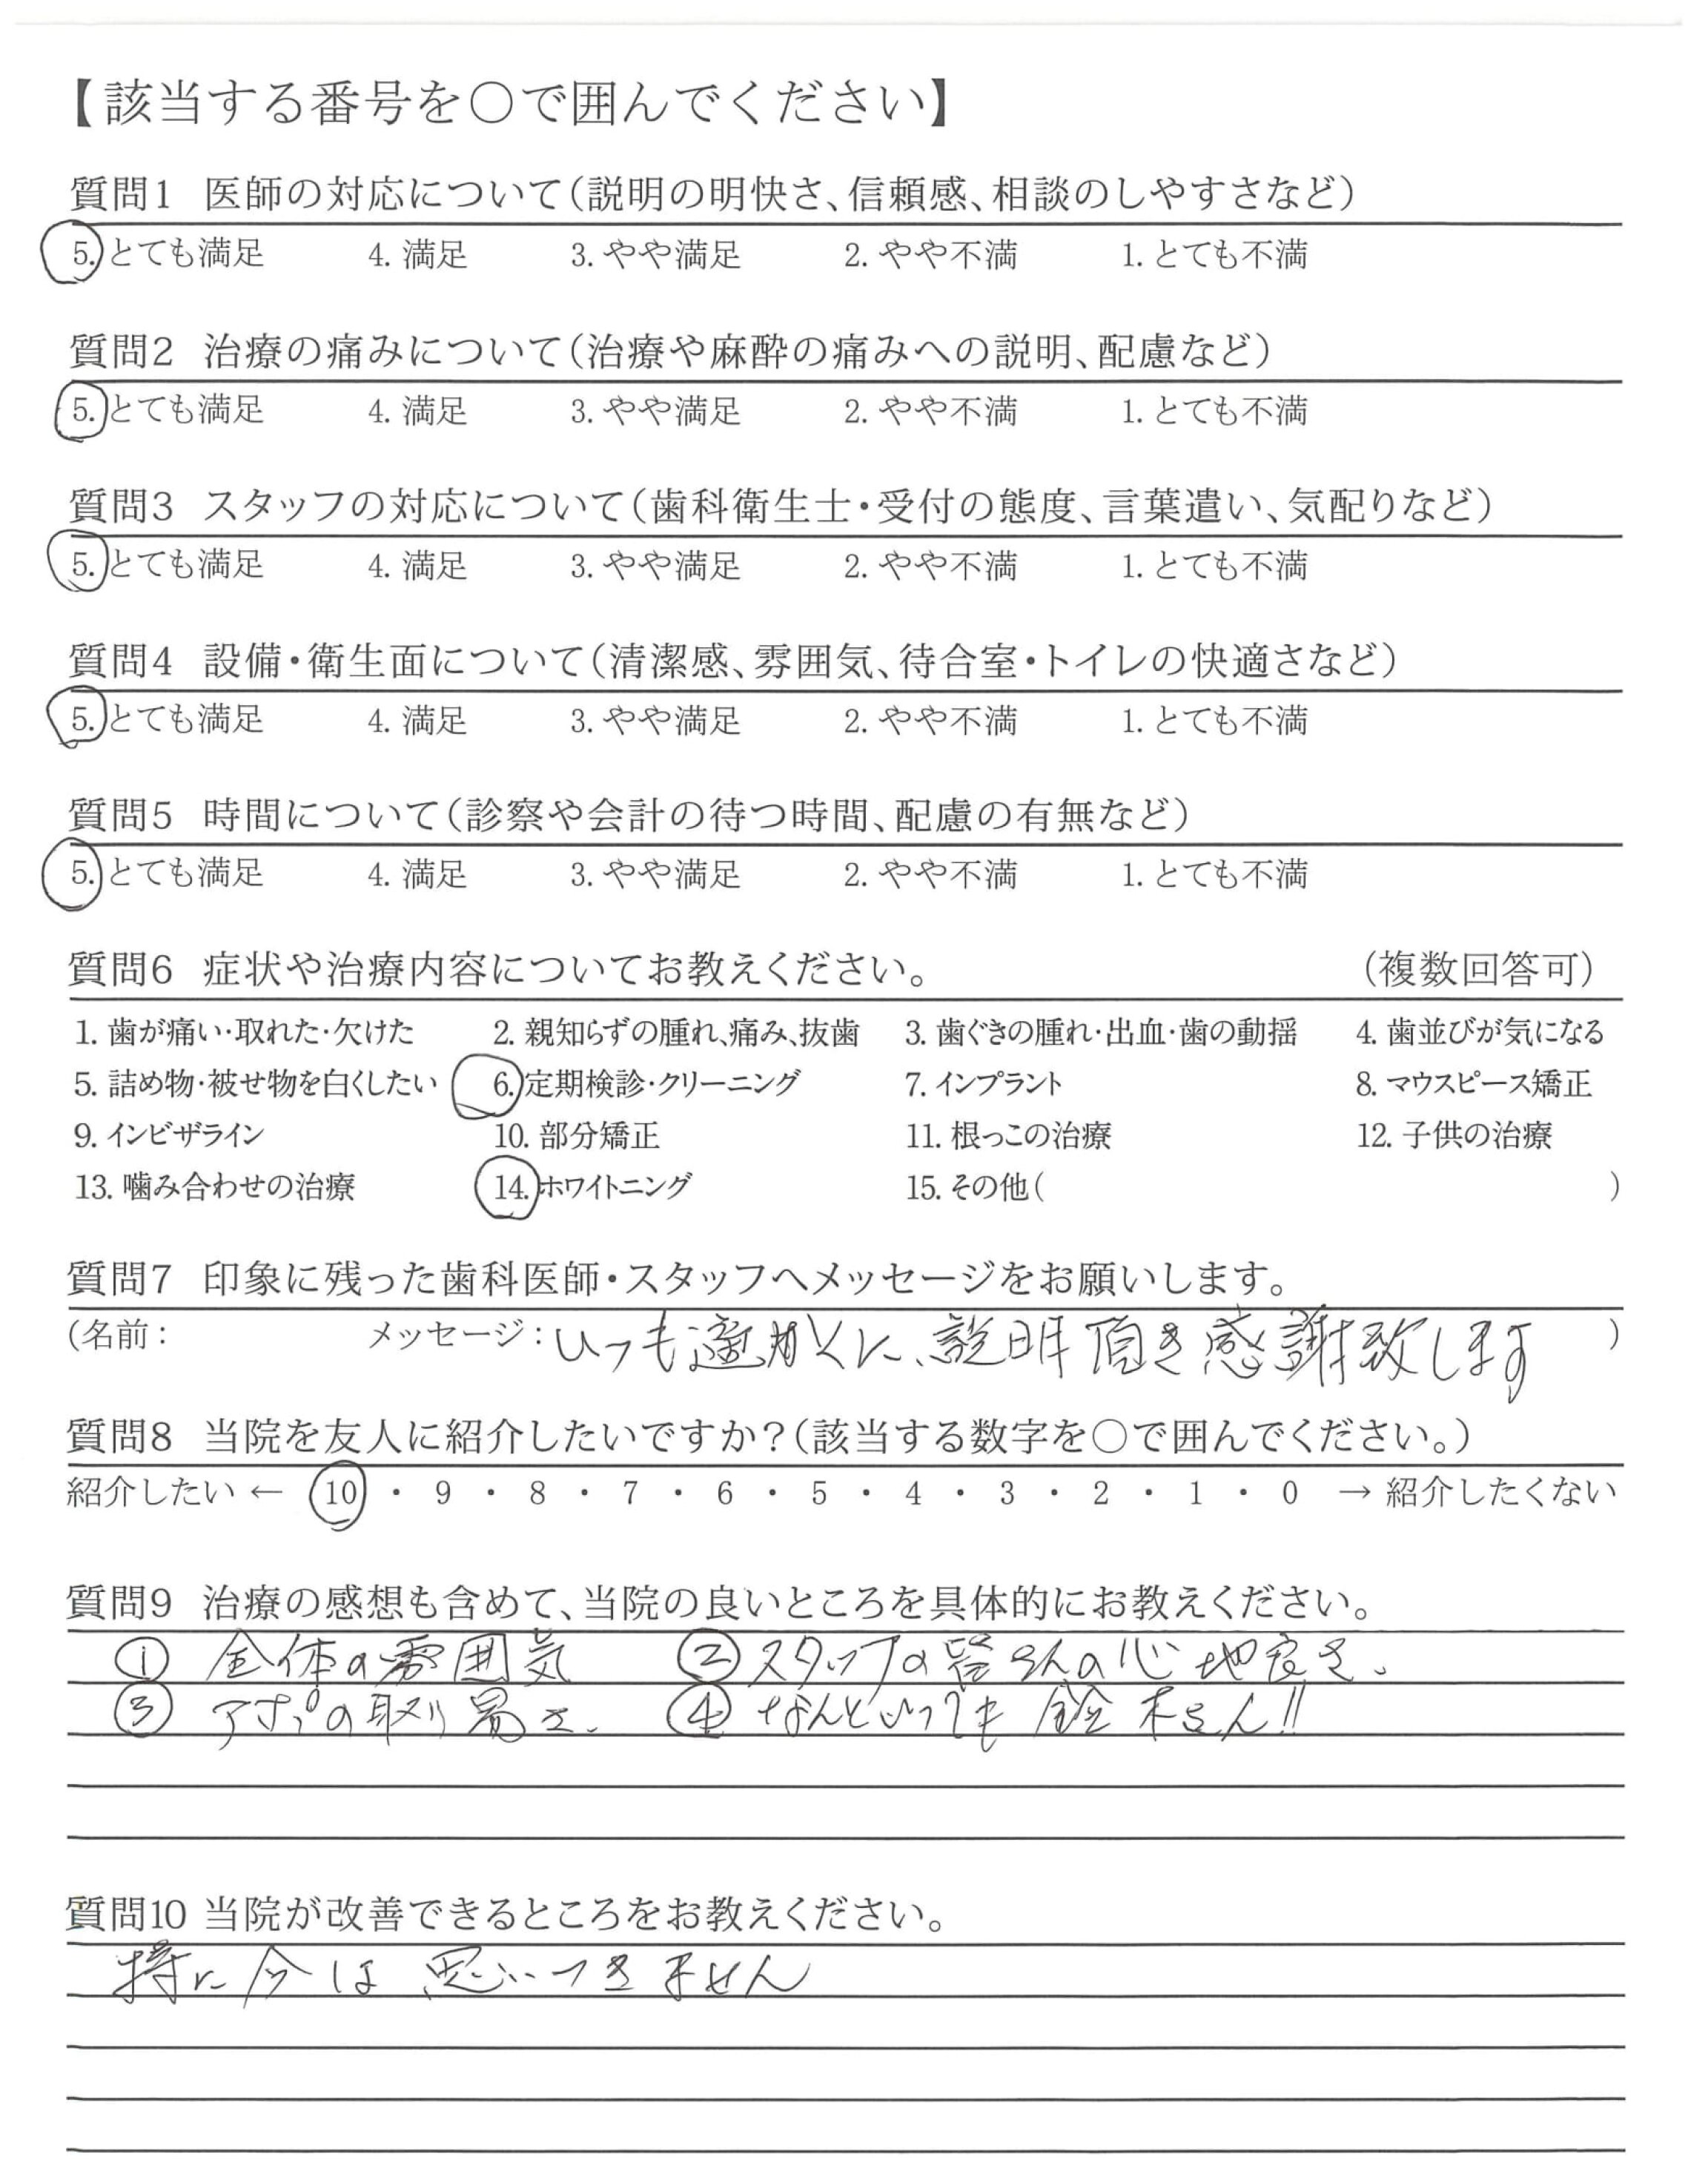 【該当する番号を○で囲んでください】
質問1 医師の対応について(説明の明快さ、信頼感、相談のしやすさなど)
5. とても満足 4. 満足 3. やや満足 2. やや不満 1. とても不満
質問2 治療の痛みについて(治療や麻酔の痛みへの説明、配慮など)
5. とても満足 4. 満足 3. やや満足 2. やや不満 1. とても不満
質問3 スタッフの対応について(歯科衛生士・受付の態度、言葉遣い、気配りなど)
5. とても満足 4. 満足 3. やや満足 2. やや不満 1. とても不満
質問4 設備・衛生面について(清潔感、雰囲気、待合室・トイレの快適さなど)
5. とても満足 4. 満足 3. やや満足 2. やや不満 1. とても不満
質問5 時間について(診察や会計の待つ時間、配慮の有無など)
5. とても満足 4. 満足 3. やや満足 2. やや不満 1. とても不満
質問6 症状や治療内容についてお教えください。 (複数回答可)
1. 歯が痛い・取れた・欠けた 2. 親知らずの腫れ、痛み、抜歯 3. 歯ぐきの腫れ・出血・歯の動揺 4. 歯並びが気になる
5. 詰め物・被せ物を白くしたい 6. 定期検診・クリーニング 7. インプラント 8. マウスピース矯正
9. インビザライン 10. 部分矯正 11. 根っこの治療 12. 子供の治療
13. 噛み合わせの治療 14. ホワイトニング 15. その他( )
質問7 印象に残った歯科医師・スタッフへメッセージをお願いします。
(名前: メッセージ:いつも適かくに、説明頂き感謝致します )
質問8 当院を友人に紹介したいですか?(該当する数字を○で囲んでください。)
紹介したい ← 10 ・ 9 ・ 8 ・ 7 ・ 6 ・ 5 ・ 4 ・ 3 ・ 2 ・ 1 ・ 0 → 紹介したくない
質問9 治療の感想も含めて、当院の良いところを具体的にお教えください。
① 全体の雰囲気 ② スタッフの皆さんの心地良さ、
③ アポの取り易さ、 ④ なんといっても 鈴木さん!!
質問10 当院が改善できるところをお教えください。
特に今は思いつきません